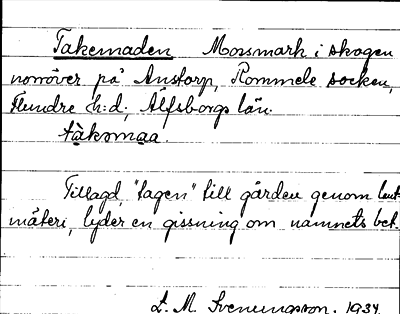 Takemaden Mossmark i skogen
norröver på Anstorp, Rommele socken,
Flundre h:d, Älfsborgs län.
tàkəmaa.
Tillagd, "tagen" till gården genom lant-
mäteri, lyder en gissning om namnets bet.
L. M. Svenungsson. 1934.